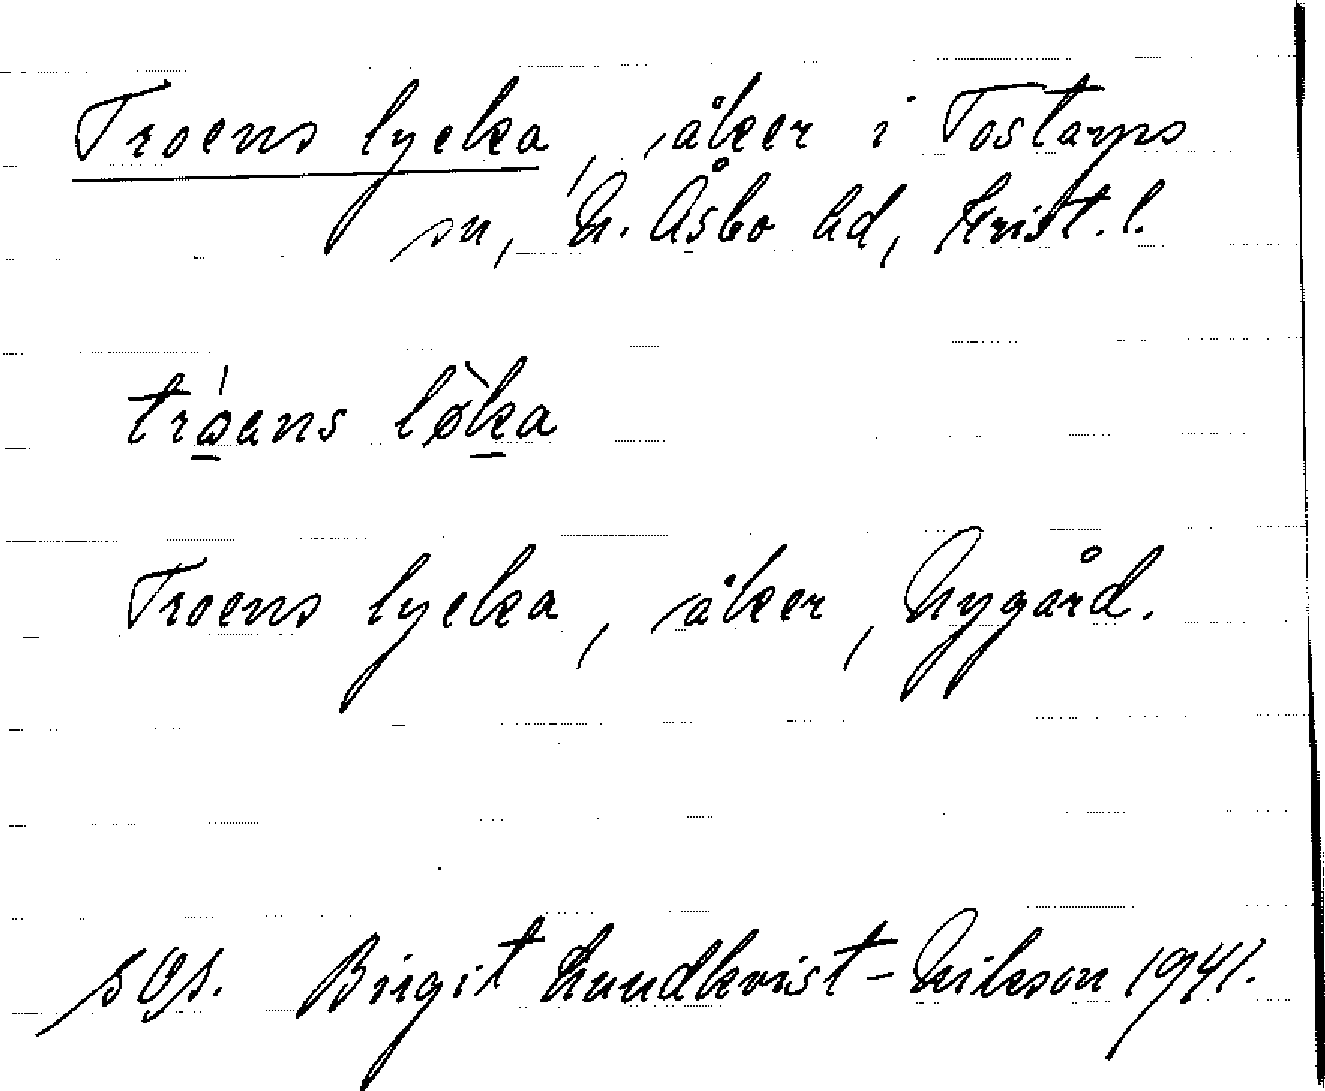 Troens lycka, åker i Tostarps
sn, N. Åsbo hd, Krist. l.
tróans lø̀ka
Troens lycka, åker, Nygård.
sOs. Birgit Lundkvist-Nilsson 1941.